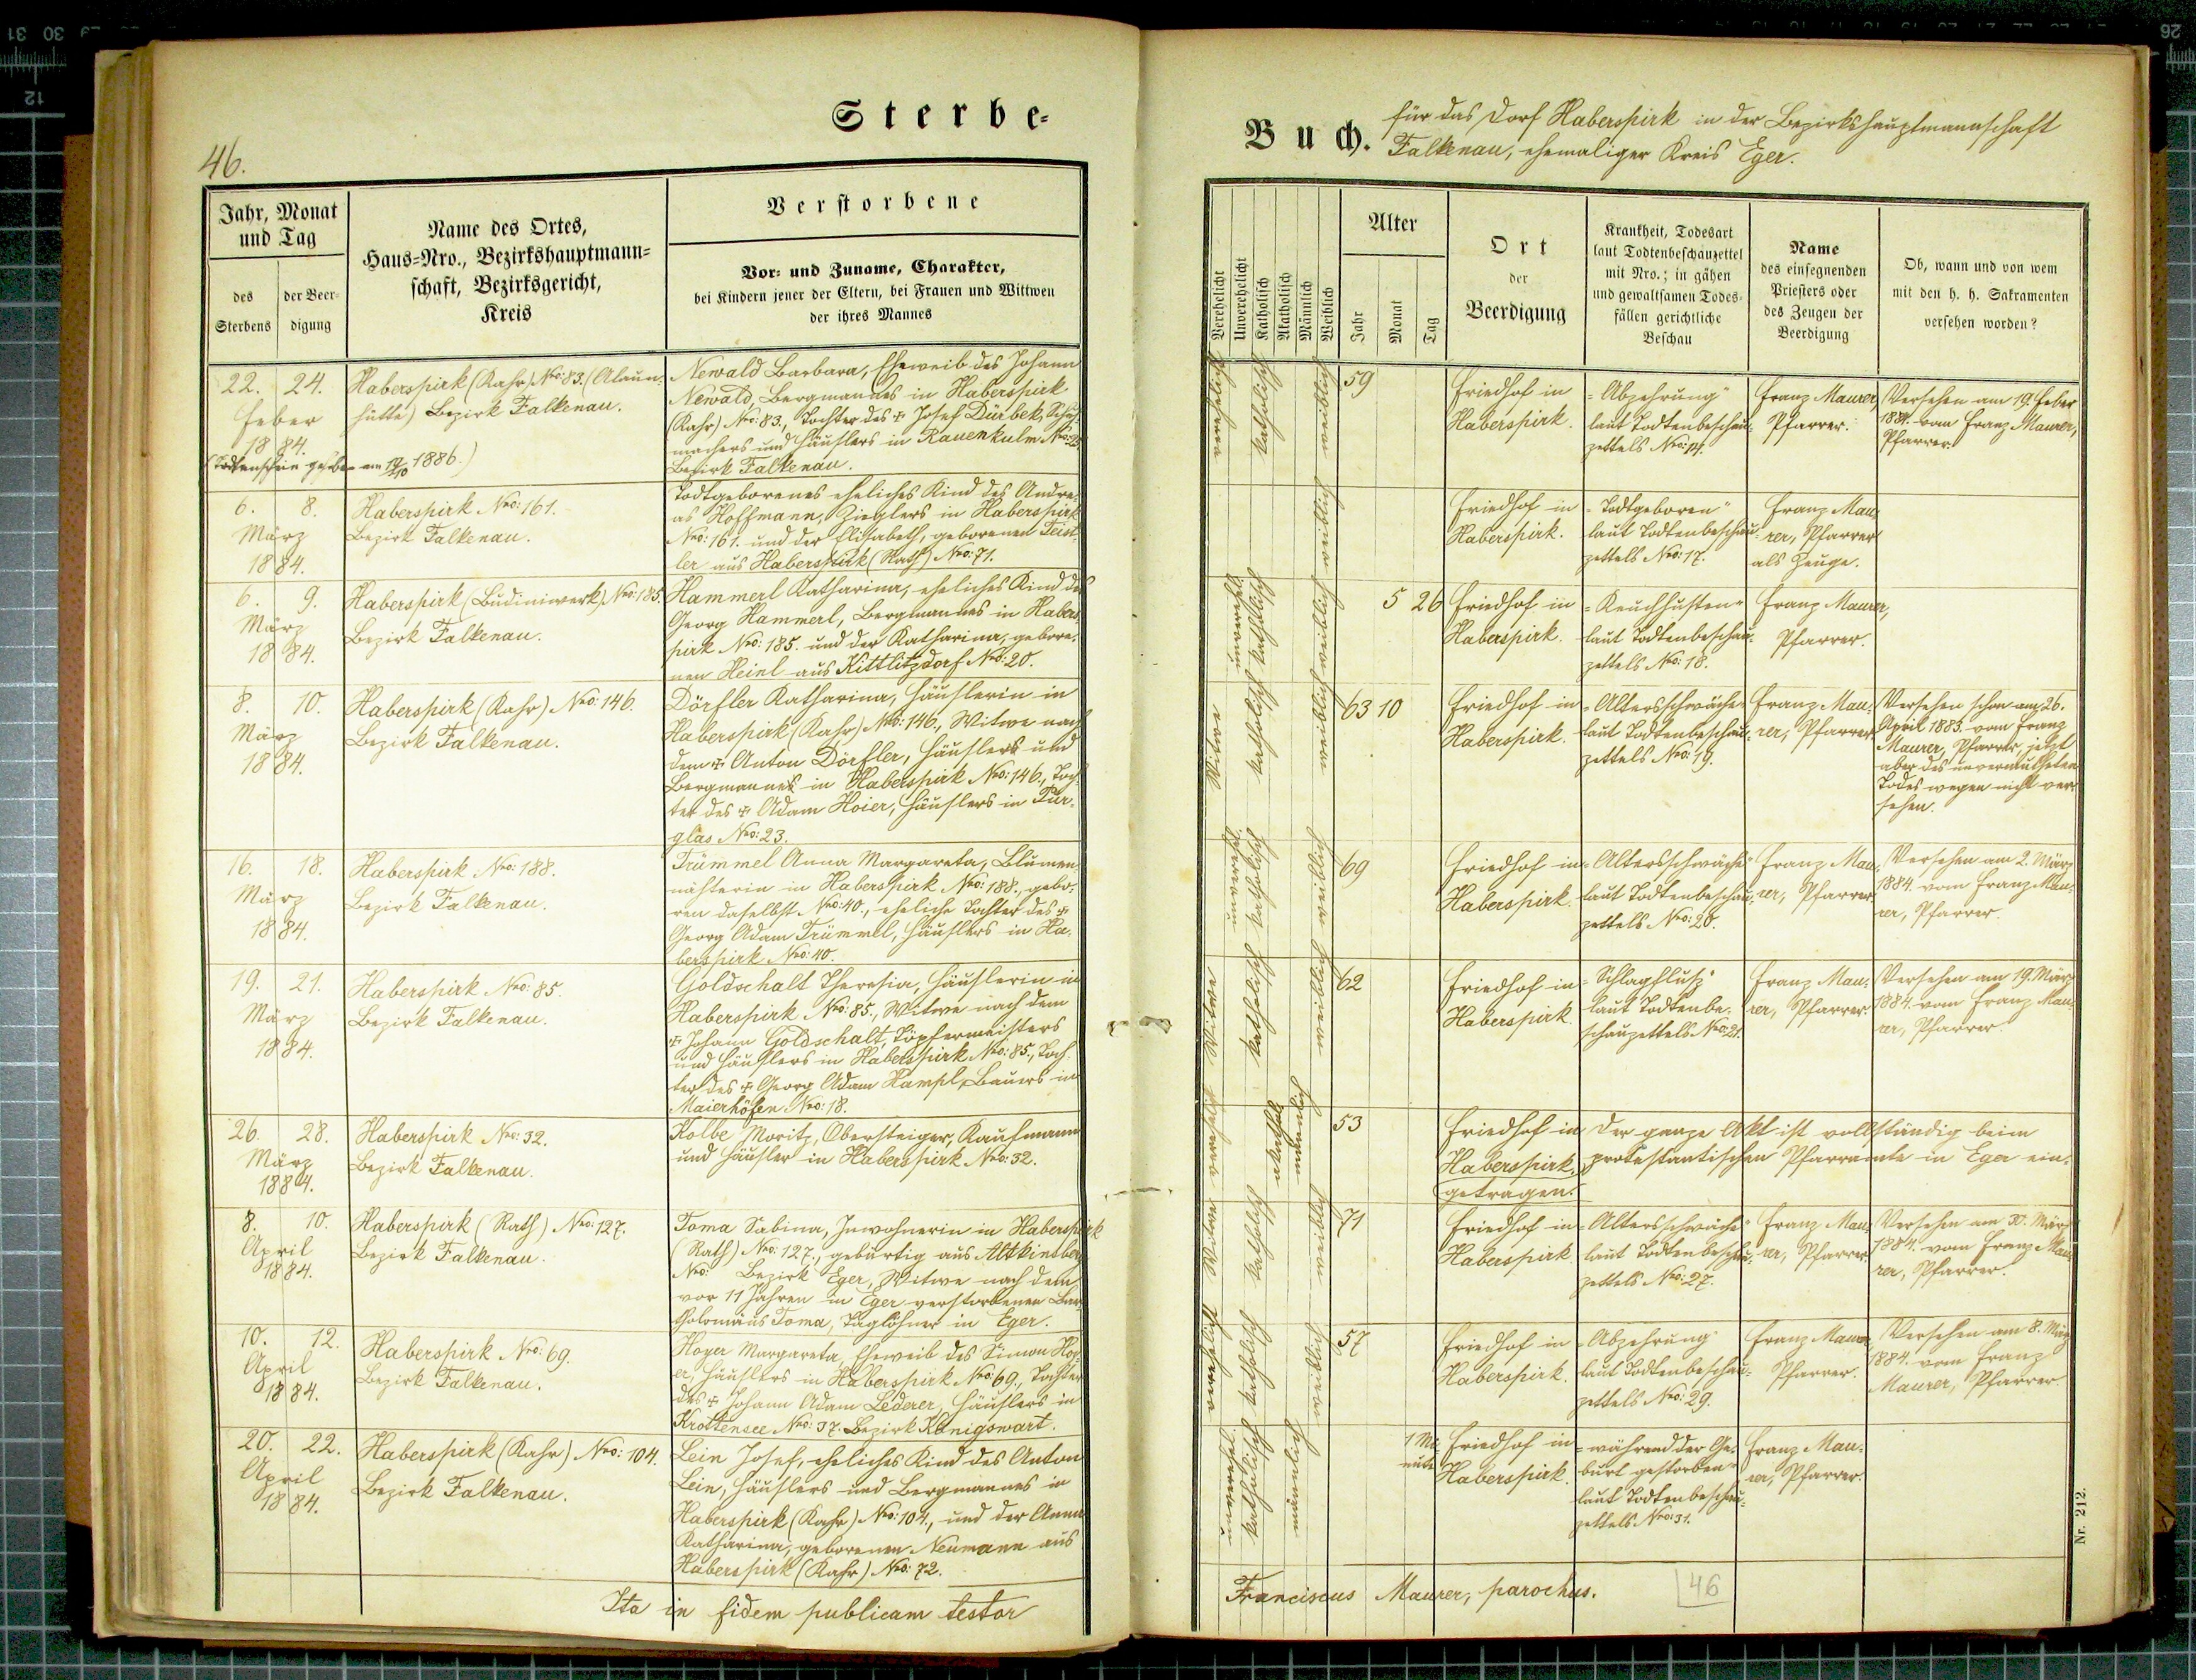 46.
Sterbe-
Jahr, Monat
und Tag
des
Sterbens
der Beer-
digung
Name des Ortes,
Haus-Nro., Bezirkshauptmann-
schaft, Bezirksgericht,
Kreis
Verstorbene
Vor- und Zuname, Charakter,
bei Kindern jener der Eltern, bei Frauen und Wittwen
der ihres Mannes
22. 24.
Feber
1884.
(Todtenschein gehoben am 17/10 1886.)
Haberspirk (Rahr) Nro: 83. (Alaun-
hütte) Bezirk Falkenau.
Newald Barbara, Eheweib des Johann
Newald, Bergmannes in Haberspirk
(Rahr) Nro: 83., Tochter des + Josef Dürbek, Schuh-
machers und Häuslers in Rauenkulm Nro: 25.
Bezirk Falkenau.
6. 8.
März
1884.
Haberspirk Nro: 161.
Bezirk Falkenau.
Todtgeborenes eheliches Kind des Andre-
as Hoffmann, Zieglers in Haberspirk
Nro: 161. und der Elisabeth, geborenen Feist-
ler aus Haberspirk (Rath) Nro: 71.
6. 9.
März
1884.
Haberspirk (Budiniwerk) Nro: 185.
Bezirk Falkenau.
Hammerl Katharina, eheliches Kind des
Georg Hammerl, Bergmannes in Habers-
pirk Nro: 185. und der Katharina, gebore-
nen Heinl aus Kittlitzdorf Nro: 20.
8. 10.
März
1884.
Haberspirk (Rahr) Nro: 146.
Bezirk Falkenau.
Dörfler Katharina, Häuslerin in
Haberspirk (Rahr) Nro: 146., Witwe nach
dem + Anton Dörfler, Häuslers und
Bergmannes in Haberspirk Nro: 146., Toch-
ter des + Adam Hoier, Häuslers in Tür-
glas Nro: 23.
16. 18.
März
1884.
Haberspirk Nro: 188.
Bezirk Falkenau.
Trümmel Anna Margareta, Blumen-
nähterin in Haberspirk Nro: 188., gebo-
ren daselbst Nro: 40., eheliche Tochter des +
Georg Adam Trümmel, Häuslers in Ha-
berspirk Nro: 40.
19. 21.
März
1884.
Haberspirk Nro: 85.
Bezirk Falkenau.
Goldschalt Theresia, Häuslerin in
Haberspirk Nro: 85., Witwe nach dem
+ Johann Goldschalt, Töpfermeisters
und Häuslers in Haberspirk Nro: 85., Toch-
ter des + Georg Adam Hampl, Bauers in
Maierhöfen Nro: 18.
26. 28.
März
1884.
Haberspirk Nro: 32.
Bezirk Falkenau.
Kolbe Moritz, Obersteiger, Kaufmann
und Häusler in Haberspirk Nro: 32.
8. 10.
April
1884.
Haberspirk (Rath) Nro: 127.
Bezirk Falkenau.
Toma Sabina, Inwohnerin in Haberspirk
(Rath) Nro: 127., gebürtig aus Altkinsberg
Nro: Bezirk Eger, Witwe nach dem
vor 11 Jahren in Eger verstorbenen Bar-
tholomäus Toma, Taglöhner in Eger.
10. 12.
April
1884.
Haberspirk Nro: 69.
Bezirk Falkenau.
Hoyer Margareta, Eheweib des Simon Hoy-
er, Häuslers in Haberspirk Nro: 69., Tochter
des + Johann Adam Lederer, Häuslers in
Krottensee Nro: 37. Bezirk Königswart.
20. 22.
April
1884.
Haberspirk (Rahr) Nro: 104.
Bezirk Falkenau.
Lein Josef, eheliches Kind des Anton
Lein, Häuslers und Bergmannes in
Haberspirk (Rahr) Nro: 104., und der Anna
Katharina, geborenen Neumann aus
Haberspirk (Rahr) Nro: 72.
Ita in fidem publicam testor
Buch.
für das Dorf Haberspirk in der Bezirkshauptmannschaft
Falkenau, ehemaliger Kreis Eger.
Verehelicht
Unverehelicht
Katholisch
Akatholisch
Männlich
Weiblich
Alter
Jahr
Monat
Tag
Ort
der
Beerdigung
Krankheit, Todesart
laut Todtenbeschauzettel
mit Nro.; in gähen
und gewaltsamen Todes-
fällen gerichtliche
Beschau
Name
des einsegnenden
Priesters oder
des Zeugen der
Beerdigung
Ob, wann und von wem
mit den h. h. Sakramenten
versehen worden?
verehelicht
katholisch
weiblich
59
Friedhof in
Haberspirk.
"Abzehrung"
laut Todtenbeschau-
zettels Nro: 14.
Franz Maurer,
Pfarrer.
Versehen am 19. Feber
1884. vom Franz Maurer,
Pfarrer.
weiblich
Friedhof in
Haberspirk.
"Todtgeboren"
laut Todtenbeschau-
zettels Nro: 17.
Franz Mau-
rer, Pfarrer
als Zeuge.
unverehel.
katholisch
weiblich
5 26
Friedhof in
Haberspirk.
"Keuchhusten"
laut Todtenbeschau-
zettels Nro: 18.
Franz Maurer,
Pfarrer.
Witwe
katholisch
weiblich
63 10
Friedhof in
Haberspirk.
"Altersschwäche"
laut Todtenbeschau-
zettels Nro: 19.
Franz Mau-
rer, Pfarrer.
Versehen schon am 26.
April 1883. vom Franz
Maurer, Pfarrer, jetzt
aber des unvermutheten
Todes wegen nicht ver-
sehen.
unverehel.
katholisch
weiblich
69
Friedhof in
Haberspirk.
"Altersschwäche"
laut Todtenbeschau-
zettels Nro: 20.
Franz Mau-
rer, Pfarrer.
Versehen am 2. März
1884. vom Franz Mau-
rer, Pfarrer.
Witwe
katholisch
weiblich
62
Friedhof in
Haberspirk.
"Schlagfluß"
laut Todtenbe-
schauzettels Nro: 21.
Franz Mau-
rer, Pfarrer.
Versehen am 19. März
1884. vom Franz Mau-
rer, Pfarrer.
verehelicht
akathol.
männlich
53
Friedhof in
Haberspirk.
Der ganze Akt ist vollständig beim
protestantischen Pfarramte in Eger ein-
getragen.
Witwe
katholisch
weiblich
71
Friedhof in
Haberspirk.
"Altersschwäche"
laut Todtenbeschau-
zettels Nro: 27.
Franz Mau-
rer, Pfarrer.
Versehen am 30. März
1884. vom Franz Mau-
rer, Pfarrer.
verehelicht
katholisch
weiblich
57
Friedhof in
Haberspirk.
"Abzehrung"
laut Todtenbeschau-
zettels Nro: 29.
Franz Maurer,
Pfarrer.
Versehen am 8. März
1884. vom Franz
Maurer, Pfarrer.
unverehel.
katholisch
männlich
1 Mi-
nute
Friedhof in
Haberspirk.
"während der Ge-
burt gestorben"
laut Todtenbeschau-
zettels Nro: 31.
Franz Mau-
rer, Pfarrer.
Franciscus Maurer, parochus.
46
Nr. 212.